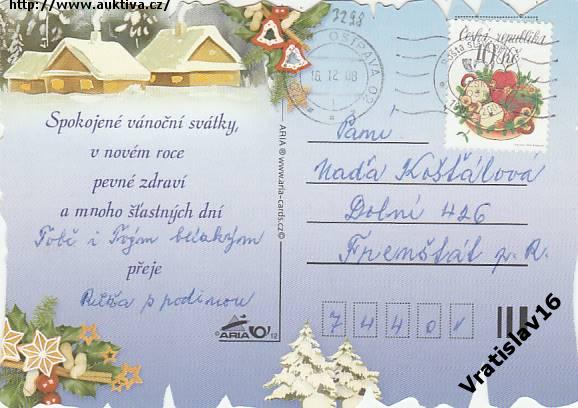 http://www.auktiva.cz/
3298
OSTRAVA 02
16.12.08
Česká republika
10 Kč
Spokojené vánoční svátky,
v novém roce
pevné zdraví
a mnoho šťastných dní
Tobě i Tvým blízkým
přeje
s rodinou
ARIA ® www.aria-cards.cz ©
Paní
Naďa Košťálová
Dolní 426
Frenštát p. R.
7 4 4 0 1
ARIA
12
Vratislav16